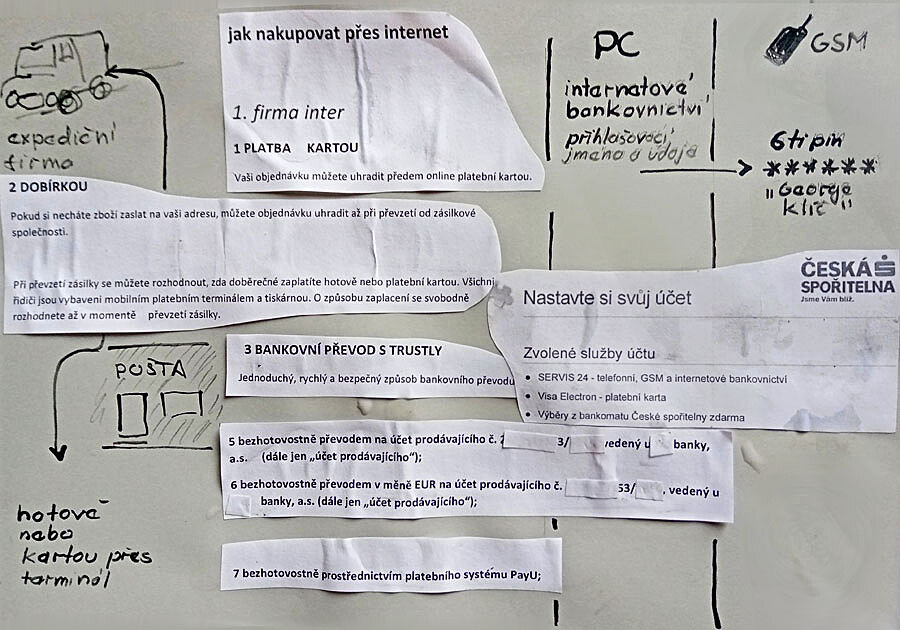 jak nakupovat přes internet
1. firma inter
1 PLATBA KARTOU
Vaši objednávku můžete uhradit předem online platební kartou.
PC
internetové
bankovnictví
přihlašovací
jméno a údaje
GSM
6ti pin
******
"George
klíč"
expediční
firma
2 DOBÍRKOU
Pokud si necháte zboží zaslat na vaši adresu, můžete objednávku uhradit až při převzetí od zásilkové
společnosti.
Při převzetí zásilky se můžete rozhodnout, zda doběrečné zaplatíte hotově nebo platební kartou. Všichni
řidiči jsou vybaveni mobilním platebním terminálem a tiskárnou. O způsobu zaplacení se svobodně
rozhodnete až v momentě převzetí zásilky.
ČESKÁ
SPOŘITELNA
Jsme Vám blíž.
Nastavte si svůj účet
Zvolené služby účtu
• SERVIS 24 - telefonní, GSM a internetové bankovnictví
• Visa Electron - platební karta
• Výběry z bankomatu České spořitelny zdarma
POŠTA
3 BANKOVNÍ PŘEVOD S TRUSTLY
Jednoduchý, rychlý a bezpečný způsob bankovního převodu
5 bezhotovostně převodem na účet prodávajícího č. 3/ vedený u banky,
a.s. (dále jen „účet prodávajícího“);
6 bezhotovostně převodem v měně EUR na účet prodávajícího č. 53/ , vedený u
banky, a.s. (dále jen „účet prodávajícího“);
hotově
nebo
kartou přes
terminál
7 bezhotovostně prostřednictvím platebního systému PayU;